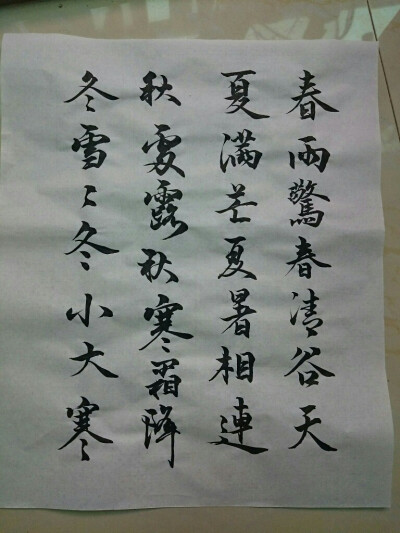 春雨驚春清谷天
夏滿芒夏暑相連
秋處露秋寒霜降
冬雪〻冬小大寒